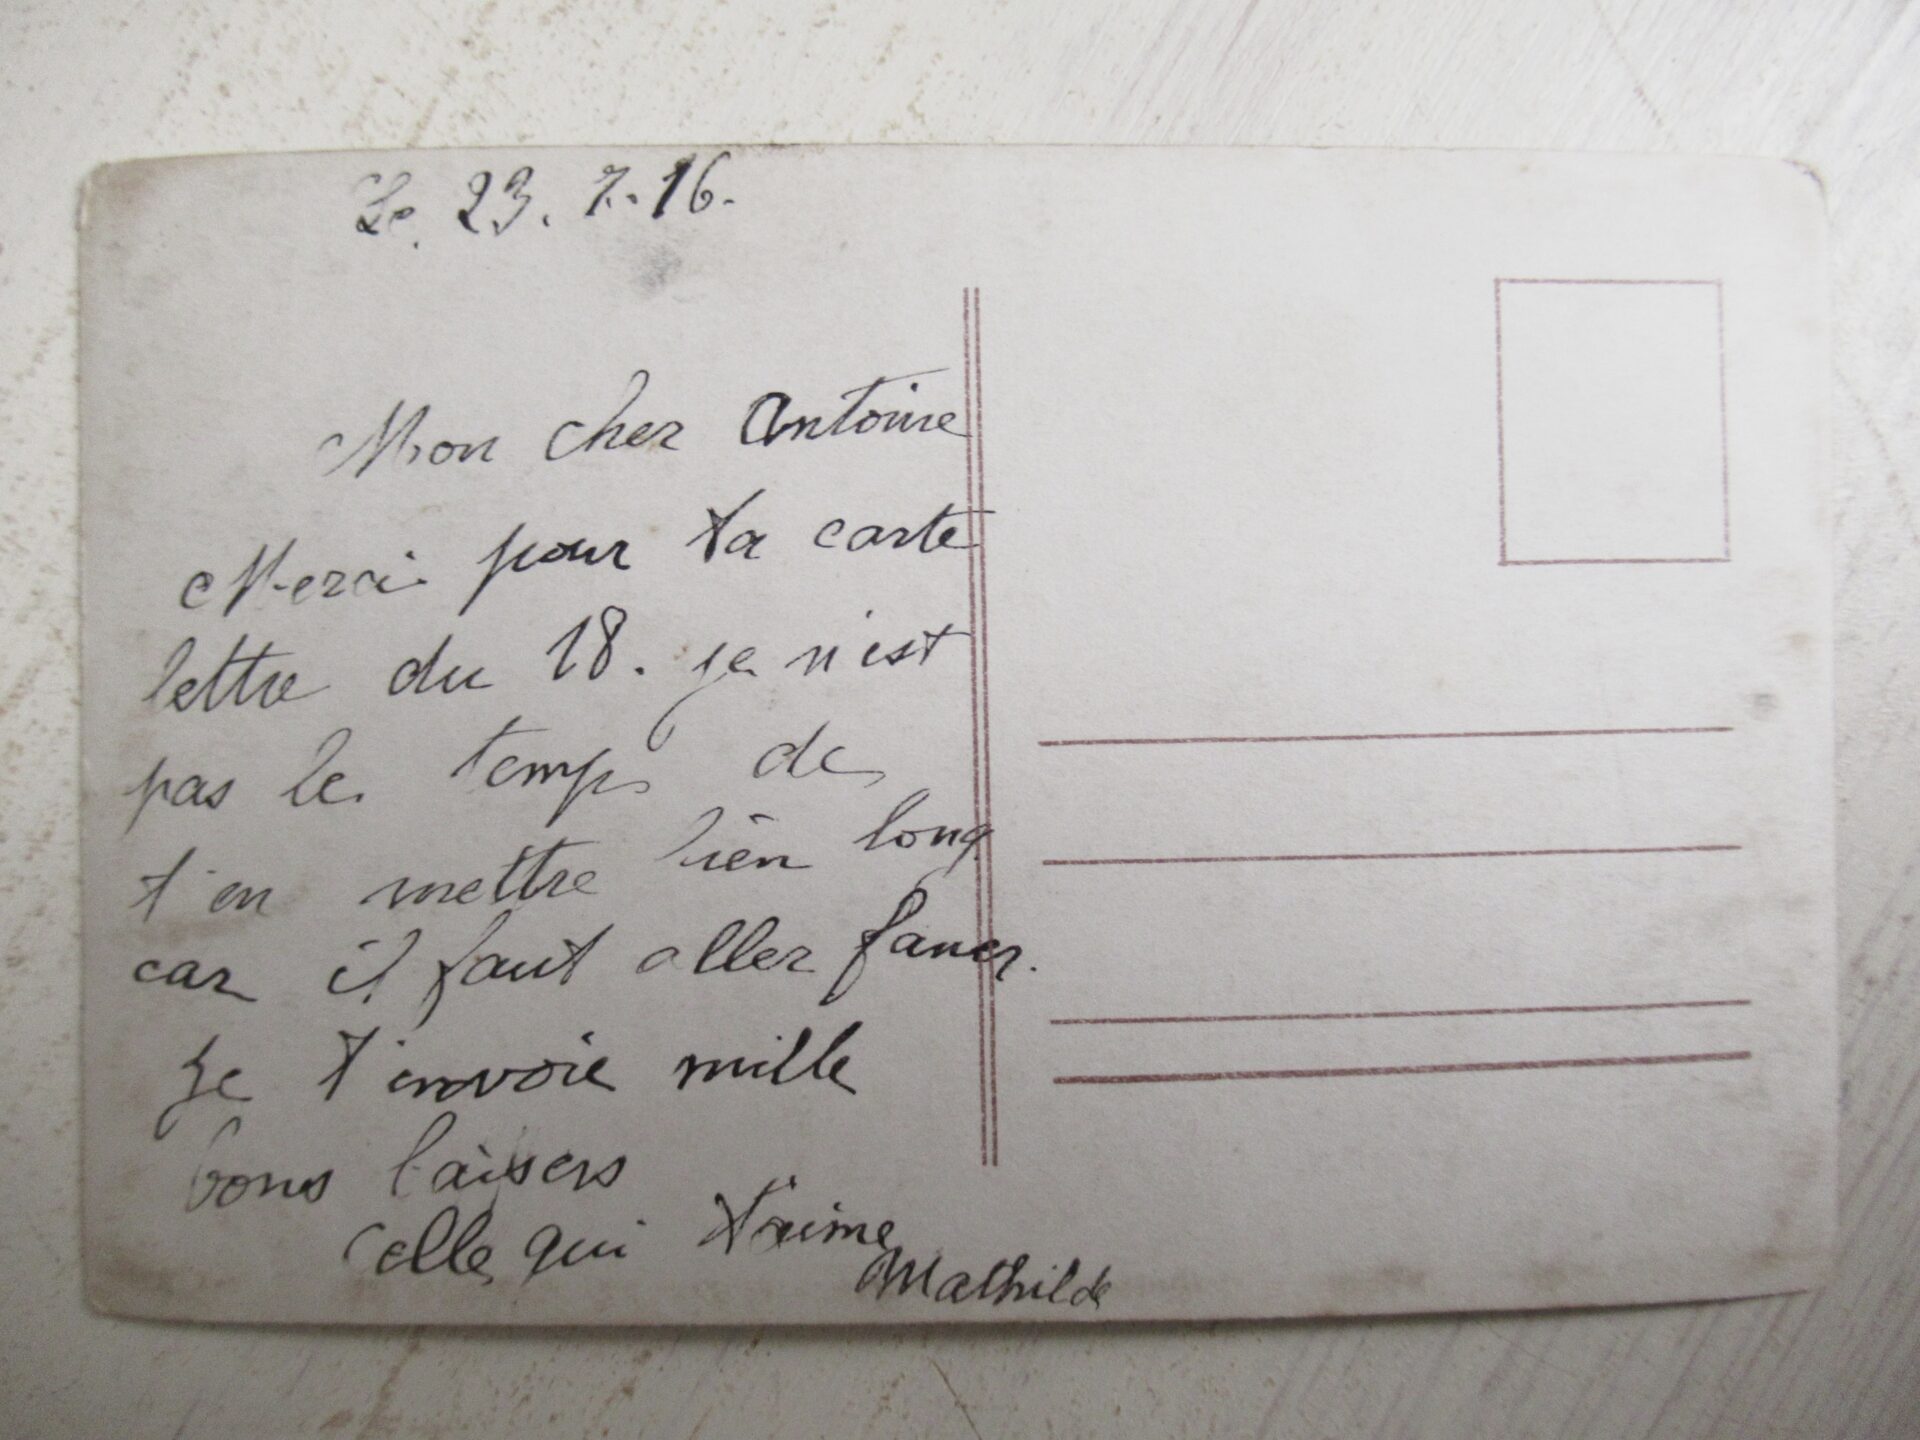 Le. 23. 7. 16.
Mon cher Antoine
Merci pour ta carte
lettre du 18. je n'est
pas le temps de
t'en mettre bien long
car il faut aller faner.
Je t'envoie mille
bons baisers
Celle qui t'aime
Mathilde